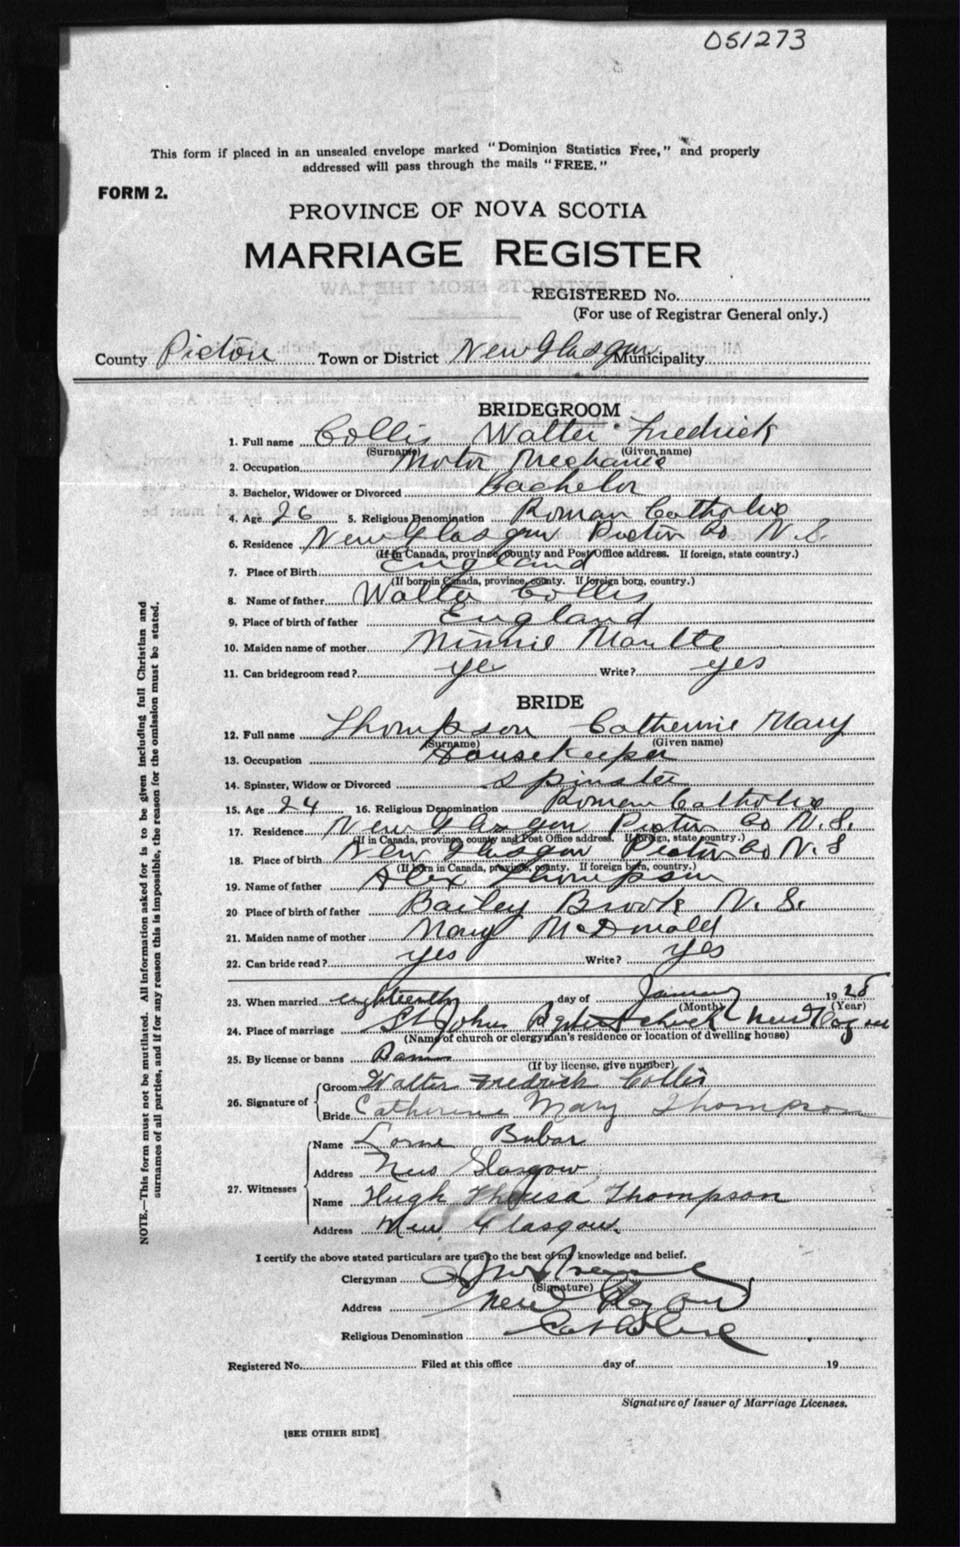 051273
This form if placed in an unsealed envelope marked "Dominion Statistics Free," and properly
addressed will pass through the mails "FREE."
FORM 2.
PROVINCE OF NOVA SCOTIA
MARRIAGE REGISTER
EXTRACTS FROM THE LAW
REGISTERED No.
(For use of Registrar General only.)
County Pictou Town or District New Glasgow Municipality
BRIDEGROOM
1. Full name Collis Walter Fredrick
(Surname) (Given name)
2. Occupation Motor Mechanic
3. Bachelor, Widower or Divorced Bachelor
4. Age 26 5. Religious Denomination Roman Catholic
6. Residence New Glasgow Pictou Co N.S.
(If in Canada, province, county and Post Office address. If foreign, state country.)
7. Place of Birth England
(If born in Canada, province, county. If foreign born, country.)
8. Name of father Walter Collis
9. Place of birth of father England
10. Maiden name of mother Minnie
11. Can bridegroom read? yes Write? yes
BRIDE
12. Full name Thompson Catherine Mary
(Surname) (Given name)
13. Occupation Housekeeper
14. Spinster, Widow or Divorced Spinster
15. Age 24 16. Religious Denomination Roman Catholic
17. Residence New Glasgow Pictou Co N.S.
(If in Canada, province, county and Post Office address. If foreign, state country.)
18. Place of birth New Glasgow Pictou Co N.S
(If born in Canada, province, county. If foreign born, country.)
19. Name of father Alex Thompson
20 Place of birth of father Bailey Brook N.S.
21. Maiden name of mother Mary McDonald
22. Can bride read? yes Write? yes
23. When married eighteenth day of January 1928
(Month) (Year)
24. Place of marriage St Johns New Glasgow
(Name of church or clergyman's residence or location of dwelling house)
25. By license or banns Banns
(If by license, give number)
26. Signature of
Groom Walter Fredrick Collis
Bride Catherine Mary Thompson
27. Witnesses
Name Lorne Bubar
Address New Glasgow
Name Hugh Theresa Thompson
Address New Glasgow.
I certify the above stated particulars are true to the best of my knowledge and belief.
Clergyman
(Signature)
Address New Glasgow
Religious Denomination Catholic
Registered No. Filed at this office day of 19
Signature of Issuer of Marriage Licenses.
[SEE OTHER SIDE]
NOTE.—This form must not be mutilated. All information asked for is to be given including full Christian and
surnames of all parties, and if for any reason this is impossible, the reason for the omission must be stated.